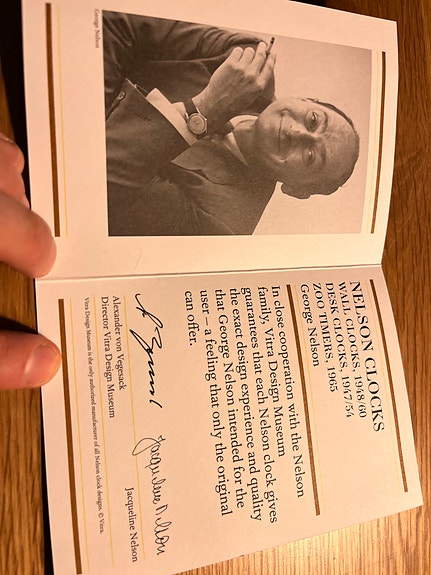 George Nelson
NELSON CLOCKS
WALL CLOCKS, 1948/60
DESK CLOCKS, 1947/54
ZOO TIMERS, 1965
George Nelson
In close cooperation with the Nelson
family, Vitra Design Museum
guarantees that each Nelson clock gives
the exact design experience and quality
that George Nelson intended for the
user – a feeling that only the original
can offer.
Jacqueline Nelson
Alexander von Vegesack
Director Vitra Design Museum
Jacqueline Nelson
Vitra Design Museum is the only authorized manufacturer of all Nelson clock designs. © Vitra.